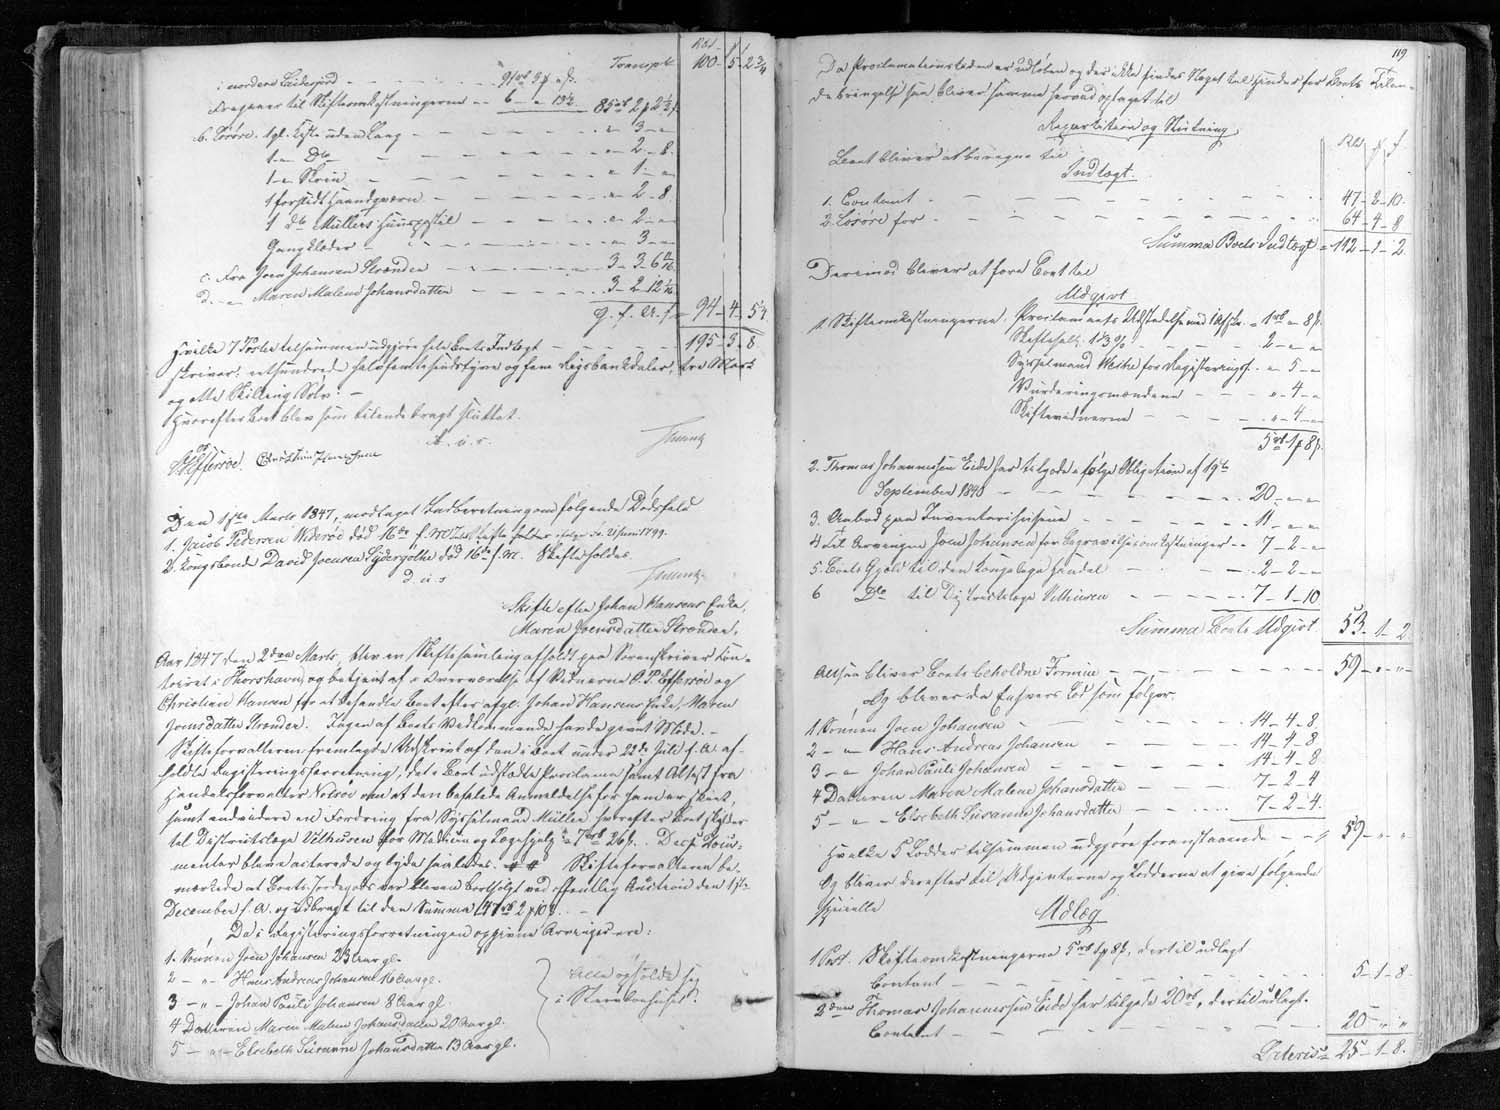 Rbd.
Transpt. 100 - 5 - 2 3/4
6 - " 13½ 85 rbd 2 # 2½ s.
b. Løsøre. 1 gl. Kiste uden Laag - - " 3 - "
1 - " Do - - " 2 - 8.
1 - " Skrin - - " 1 - "
1 forslidt Haandqværn - - " 2 - 8
1 do Müllers Huuspostil - - " 2 - "
Gangklæder - - " 3 - "
c. fra Joen Johansen Strænder - - 3 - 3 - 6
d. - " - Maren Malene Johansdatter - - 3 - 2 - 12
94 - 4 - 5¼
hvilke 7 Poster tilsammen udgjøre hele Boets Indtægt - - 195 - 3 - 8
skriver: eethundrede halvfemtesindstyve og fem Rigsbankdaler, tre Mark
og otte Skilling Sølv. -
Hvorefter Boet blev som tilendebragt sluttet.
D. u. s.
Effersøe. Christian Hansen
Den 1ste Marts 1847, modtaget Indberetning om følgende Dødsfald
1. Jacob Pedersen Viderøe død 16de f. M.
2. Kongsbonde David Joensen Sydergøthe død 16de f. M. Skifte holdes.
D. u. s.
Skifte efter Johan Hansens Enke,
Maren Joensdatter Strænder.
Aar 1847 den 2den Marts, blev en Skiftesamling afholdt paa Sorenskriver Con-
toiret i Thorshavn, og betjent af i Overværelse af Vidnerne O. P. Effersøe og
Christian Hansen for at behandle Boet efter afgl. Johan Hansens Enke, Maren
Joensdatter Strænder. Ingen af Boets Vedkommende havde givet Møde. -
Skifteforvalteren fremlagde Udskrivt af den i Boet under 22de Juli f. A. af-
holdte Registeringsforretning, det i Boet udstædte Proclama samt Attest fra
Handelsforvalter Nolsøe om at den befalede Anmeldelse for ham er skeet,
samt endvidere en Fordring fra Sysselmand Müller hvorefter Boet skylder
til Districtslæge Velhusen for Medicin og Lægehjelp " 7 rbd 26 s. Disse Docu-
menter bleve acterede og lyde saaledes. Skifteforvalteren be-
mærkede at Boets Jordegods var bleven bortsolgt ved offentlig Auction den 1ste
December f. A. og udbragt til den Summa 47 rbd 2 # 10 s.
Da i Registeringsforretningen opgivne Arvinger ere:
1. Sønnen Joen Johansen 23 Aar gl.
2 - " - Hans Andreas Johansen 16 Aar gl.
3 - " - Johan Pauli Johansen 8 Aar gl.
4 Datteren Maren Malene Johansdatter 20 Aar gl.
5 - " - Elsebeth Susanne Johansdatter 13 Aar gl.
Alle opholde sig
i Stervboehuset.
119
Da Proclamationstiden er udløben og der ikke findes Noget til Hinder for Boets Tilen-
debringelse saa bliver samme herved optaget til
Repartition og Slutning
Boet bliver at beregne til
Indtægt.
Rbd # s
1. Contant - - 47 - 2 - 10.
2. Løsøre for - - 64 - 4 - 8
Summa Boets Indtægt = 112 - 1 - 2.
Derimod bliver at føre Boet til
Udgivt
1. Skifteomkostningerne. Proclamaets Udstædelse med 1 Afskr. = 1 rbd " 8 s.
Skiftesalt. 1⅓ % - - 2 - " - "
Sysselmand Weihe for Registeringsf. - " 5 - "
Vurderingsmændene - - " - 4 - "
Skiftevidnerne - - " - 4 - "
5 rbd 1 # 8 s.
2. Thomas Johannessen Eide har tilgode ifølge Obligation af 19de
September 1840 - - 20 - " - "
3. Aabod paa Inventariihusene - - 11 - " - "
4 Til Arvingen Joen Johansen for Begravelsesomkostninger - - 7 - 2 - "
5. Boets Gjæld til den Kongelige Handel - - 2 - 2 - "
6 Do til Districtslæge Velhusen - - 7 - 1 - 10
Summa Boets Udgivt 53 - 1 - 2
Altsaa bliver Boets beholdne Formue - - 59 - " - "
Og bliver da Enhvers Lod som følger.
1 Sønnen Joen Johansen - - 14 - 4 - 8
2 - " - Hans Andreas Johansen - - 14 - 4 - 8
3 - " - Johan Pauli Johansen - - 14 - 4 - 8
4 Datteren Maren Malene Johansdatter - - 7 - 2 - 4
5 - " - Elsebeth Susanne Johansdatter - - 7 - 2 - 4.
hvilke 5 Lodder tilsammen udgjøre foranstaaende - - 59 - " - "
Og bliver derefter til Udgivterne og Lodderne at give følgende
specielle Udlæg
1 Post. Skifteomkostningerne 5 rbd 1 # 8 s., dertil udlagt
Contant - - 5 - 1 - 8
2den Thomas Johannessen Eide har tilgode 20 rbd, dertil udlagt.
Contant - - 20 - " - "
Lateris = 25 - 1 - 8.